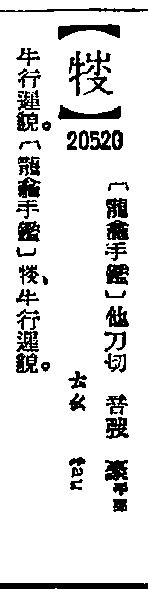 【】
20520
〔龍龕手鑑〕他刀切 音弢 豪平聲
ㄊㄠ tau
牛行遲貌。〔龍龕手鑑〕、牛行遲貌。